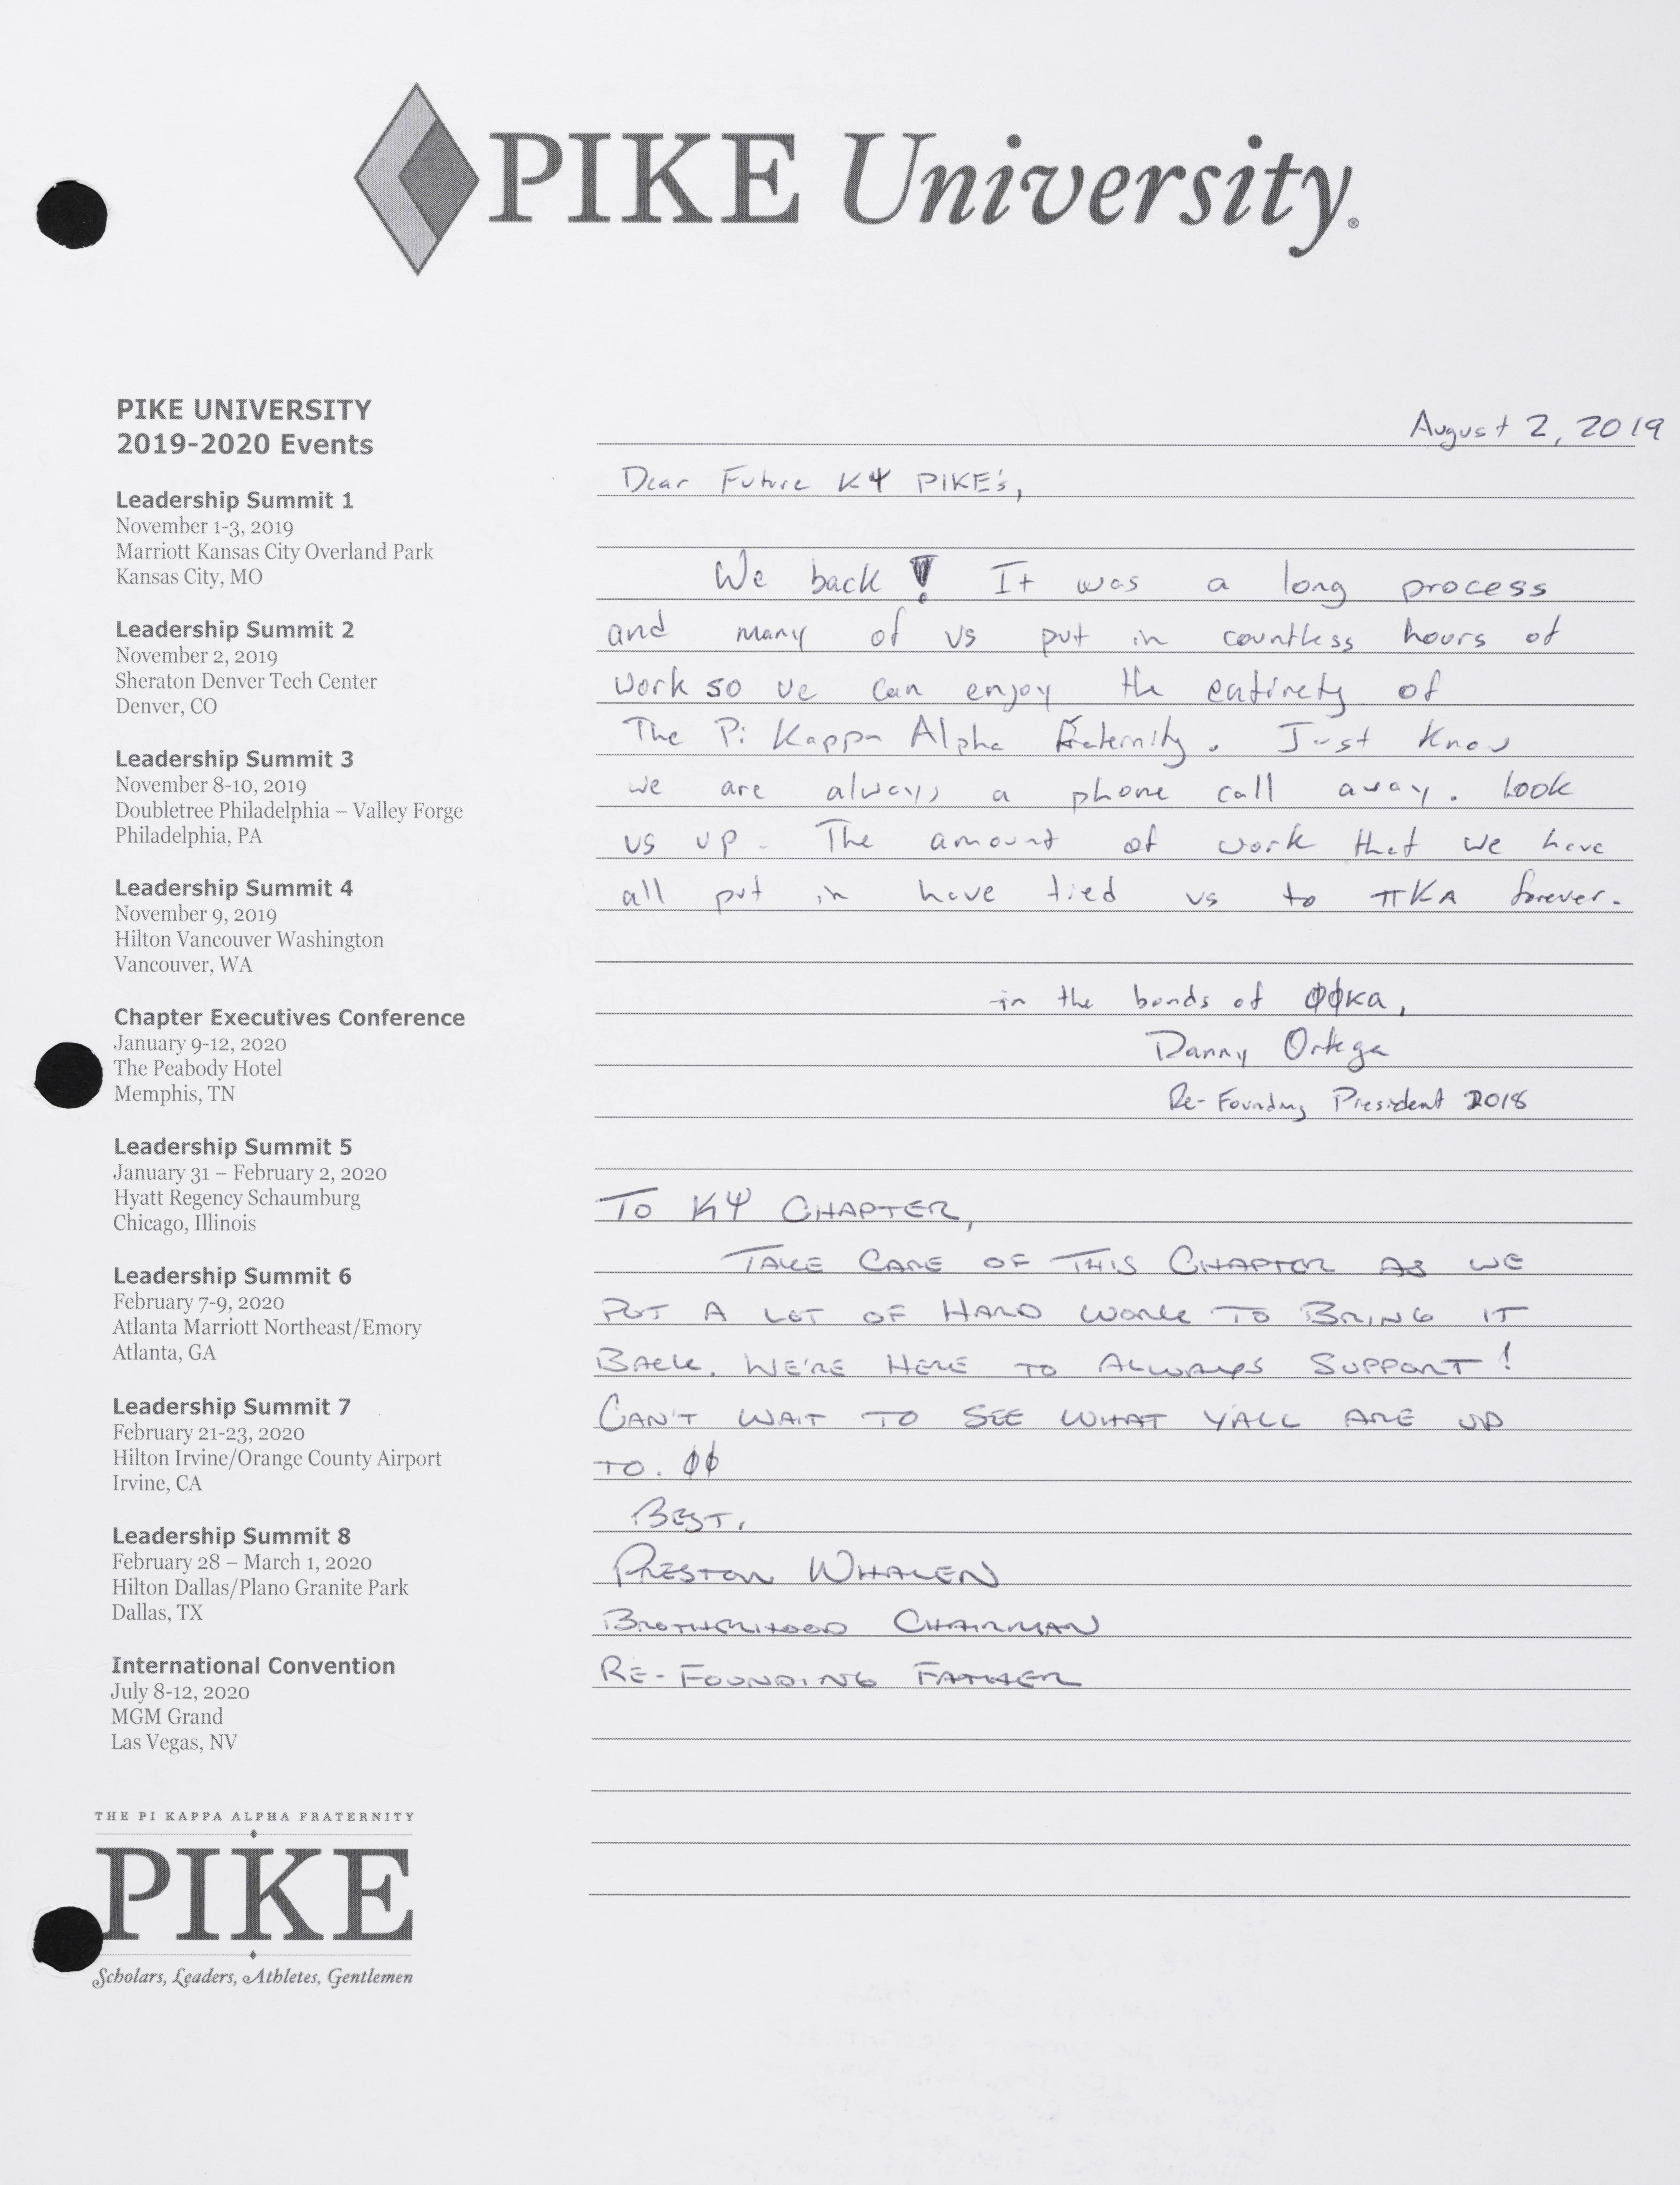 PIKE University®
PIKE UNIVERSITY
2019-2020 Events
Leadership Summit 1
November 1-3, 2019
Marriott Kansas City Overland Park
Kansas City, MO
Leadership Summit 2
November 2, 2019
Sheraton Denver Tech Center
Denver, CO
Leadership Summit 3
November 8-10, 2019
Doubletree Philadelphia – Valley Forge
Philadelphia, PA
Leadership Summit 4
November 9, 2019
Hilton Vancouver Washington
Vancouver, WA
Chapter Executives Conference
January 9-12, 2020
The Peabody Hotel
Memphis, TN
Leadership Summit 5
January 31 – February 2, 2020
Hyatt Regency Schaumburg
Chicago, Illinois
Leadership Summit 6
February 7-9, 2020
Atlanta Marriott Northeast/Emory
Atlanta, GA
Leadership Summit 7
February 21-23, 2020
Hilton Irvine/Orange County Airport
Irvine, CA
Leadership Summit 8
February 28 – March 1, 2020
Hilton Dallas/Plano Granite Park
Dallas, TX
International Convention
July 8-12, 2020
MGM Grand
Las Vegas, NV
THE PI KAPPA ALPHA FRATERNITY
PIKE
Scholars, Leaders, Athletes, Gentlemen
August 2, 2019
Dear Future KΨ PIKE's,
We back! It was a long process
and many of us put in countless hours of
work so we can enjoy the entirety of
The Pi Kappa Alpha Fraternity. Just know
we are always a phone call away. Look
us up. The amount of work that we have
all put in have tied us to πKA forever.
in the bonds of ϕϕKA,
Danny Ortega
Re-Founding President 2018
TO KΨ CHAPTER,
TAKE CARE OF THIS CHAPTER AS WE
PUT A LOT OF HARD WORK TO BRING IT
BACK. WE'RE HERE TO ALWAYS SUPPORT!
CAN'T WAIT TO SEE WHAT Y'ALL ARE UP
TO. ϕϕ
BEST,
PRESTON WHALEN
BROTHERHOOD CHAIRMAN
RE-FOUNDING FATHER